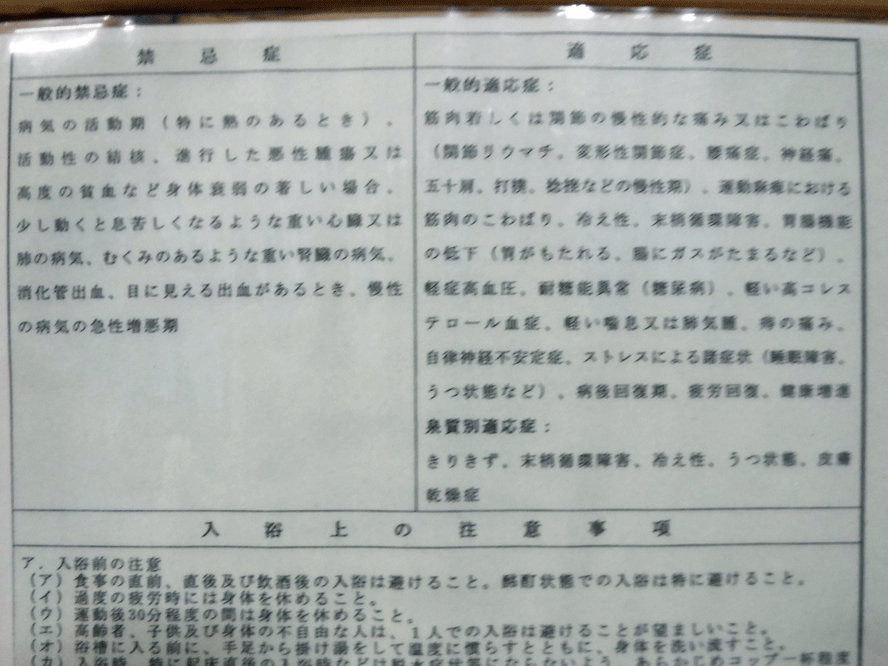 禁忌症
一般的禁忌症：
病気の活動期（特に熱のあるとき）、
活動性の結核、進行した悪性腫瘍又は
高度の貧血など身体衰弱の著しい場合、
少し動くと息苦しくなるような重い心臓又は
肺の病気、むくみのあるような重い腎臓の病気、
消化管出血、目に見える出血があるとき、慢性
の病気の急性増悪期
適応症
一般的適応症：
筋肉若しくは関節の慢性的な痛み又はこわばり
（関節リウマチ、変形性関節症、腰痛症、神経痛、
五十肩、打撲、捻挫などの慢性期）、運動麻痺における
筋肉のこわばり、冷え性、末梢循環障害、胃腸機能
の低下（胃がもたれる、腸にガスがたまるなど）、
軽症高血圧、耐糖能異常（糖尿病）、軽い高コレス
テロール血症、軽い喘息又は肺気腫、痔の痛み、
自律神経不安定症、ストレスによる諸症状（睡眠障害、
うつ状態など）、病後回復期、疲労回復、健康増進
泉質別適応症：
きりきず、末梢循環障害、冷え性、うつ状態、皮膚
乾燥症
入浴上の注意事項
ア．入浴前の注意
（ア）食事の直前、直後及び飲酒後の入浴は避けること。酩酊状態での入浴は特に避けること。
（イ）過度の疲労時には身体を休めること。
（ウ）運動後30分程度の間は身体を休めること。
（エ）高齢者、子供及び身体の不自由な人は、１人での入浴は避けることが望ましいこと。
（オ）浴槽に入る前に、手足から掛け湯をして温度に慣らすとともに、身体を洗い流すこと。
（カ）入浴時、特に起床直後の入浴時などは脱水症状等にならないよう、あらかじめコップ一杯程度